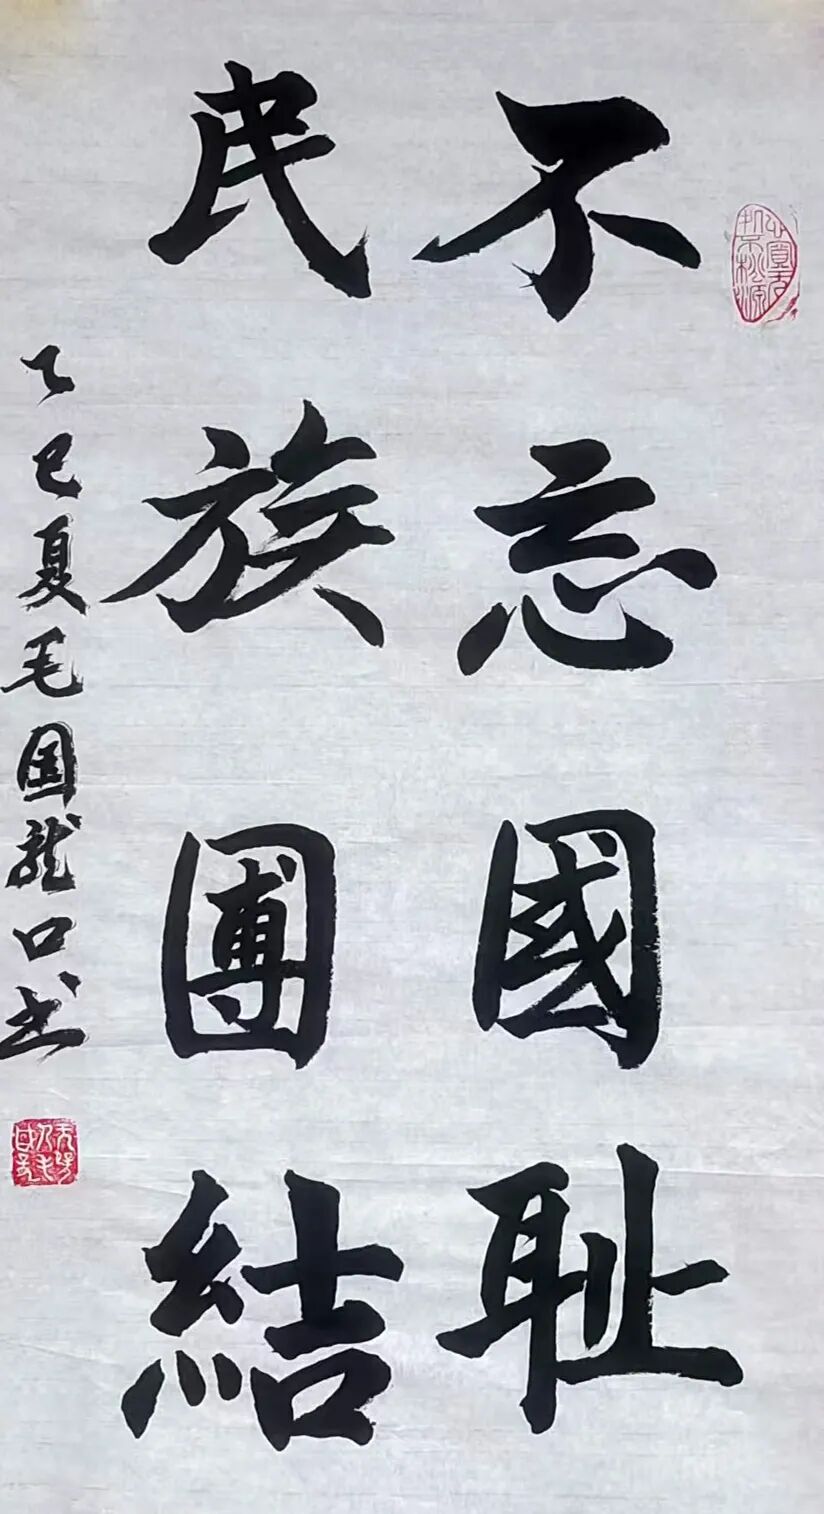 不忘國耻
民族團結
乙巳夏毛国龍口书